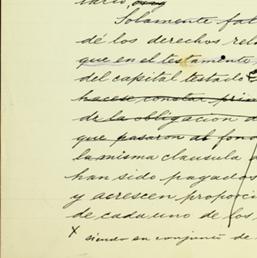 tario,
Solamente fal
dé los derechos rel
que en el testamento,
del capital testado
hacese constar prim
de la obligacion d
que pasaron al fond
la misma clausula d
han sido pagados
y acrescen proporci
de cada uno de los
X siendo en conjunto de